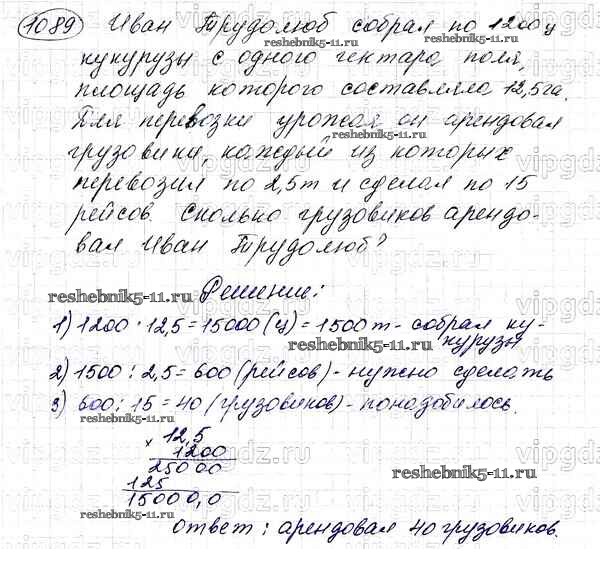 1089 Иван Трудолюб собрал по 1200 ц
reshebnik5-11.ru
кукурузы с одного гектара поля,
площадь которого составляла 12,5 га.
Для перевозки урожая он арендовал
reshebnik5-11.ru
грузовики, каждый из которых
перевозил по 2,5 т и сделал по 15
рейсов. Сколько грузовиков арендо-
вал Иван Трудолюб?
Решение:
reshebnik5-11.ru
1) 1200 · 12,5 = 15000 (ц) = 1500 т - собрал ку-
курузы
reshebnik5-11.ru
2) 1500 : 2,5 = 600 (рейсов) - нужно сделать
3) 600 : 15 = 40 (грузовиков) - понадобилось.
reshebnik5-11.ru
× 12,5
1200
25000
125
15000,0
reshebnik5-11.ru
reshebnik5-11.ru
Ответ: арендовал 40 грузовиков.
vipgdz.ru